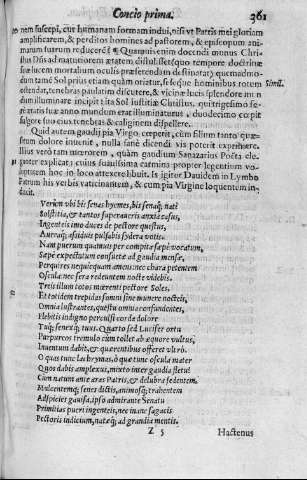 Concio prima. 361
nem suscepi, cur humanam formam indui, nisi vt Patris mei gloriam
amplificarem, & perditos homines ad pastorem, & episcopum ani-
marum suarum reducerē? ¶ Quapropter docendi munus Chris
tus Dñs ad maturiorem ætatem distulisset quo tempore doctrinæ
suæ lucem mortalium oculis præferendam destinarat; quemadmo-
dum tamē Sol prius etiam quàm oriatur, seseque hominibus totum
ostendat, tenebras paulatim discutere, & vicina lucis splendore ani
dum illuminare incipit: ita Sol iustitiæ Christus, quitrigesimo fe-
rè ætatis suæ anno mundum erat illuminaturus, duodecimo cœpit
fulgore suo eius tenebras & caliginem dispellere.
Quid autem gaudij pia Virgo ceperit, cùm filium tanto quæ-
situm dolore inuenit, nulla sanè dicendi vis poterit exprimere.
Illius verò tam mœrorem, quàm gaudium Sanazarius Poëta ele-
ganter explicat; cuius suauissima carmina propter legentium vo-
luptatem hoc in loco attexere libuit. Is igitur Dauidem in Lymbo
Patrum his verbis vaticinantem, & cum pia Virgine loquentem in-
ducit.
Verùm vbi bis senas hyemes, bis senaq́; nati
Solstitia, & tantos superaueris anxia casus,
Ingenteis imo duces de pectore questus,
Auratáq́; assiduis pulsabis sydera votis:
Nam puerum quamuis per compita sæpè vocatum,
Sæpè expectatum consueta ad gaudia mensæ,
Perquires nequicquam amens: nec chara petentem
Oscula nec sera redeuntem nocte videbis.
Treis illum totos mœrenti pectore Soles,
Et totidem trepidas somni sine munere nocteis,
Omnia lustrantes, questu omnia confundentes,
Flebitis indigno perculsi corda dolore
Tuq́; senexq́; tuus. Quarto sed Lucifer ortu
Purpureos tremulo cùm tollet ab æquore vultus,
Inuentum dabit, & quærentibus offeret vltrò.
O quas tunc lachrymas, ô quæ tunc oscula mater
Quos dabis amplexus, mixto inter gaudia fletu!
Cùm natum ante aras Patris, & delubra sedentem,
Mulcentemq́; senes dictis, animosq́; trahentem
Adspicies gauisa, ipso admirante Senatu
Primitias pueri ingenteis, nec inane sagacis
Pectoris indicium, natæq́; ad grandia mentis.
Z 5 Hactenus